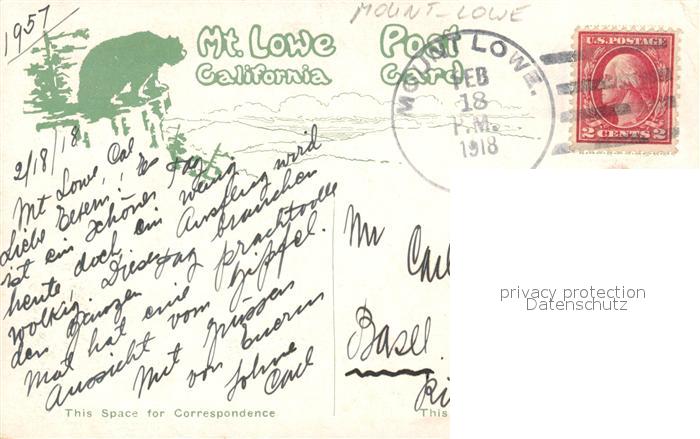 1957
MOUNT-LOWE
Mt. Lowe Post
California Card
MOUNT LOWE.
FEB
18
P.M.
1918
U.S. POSTAGE
2 CENTS 2
2/18/18
Mt Lowe, Cal
Liebe Eltern! Es
ist ein schöner Tag
heute doch ein wenig
wolkig. Dieser Ausflug wird
den ganzen Tag brauchen
Man hat eine prachtvolle
Aussicht vom Gipfel.
Mit Grüssen
von Eurem
Sohne
Carl
Mr Carl
Basel.
privacy protection
Datenschutz
This Space for Correspondence
This